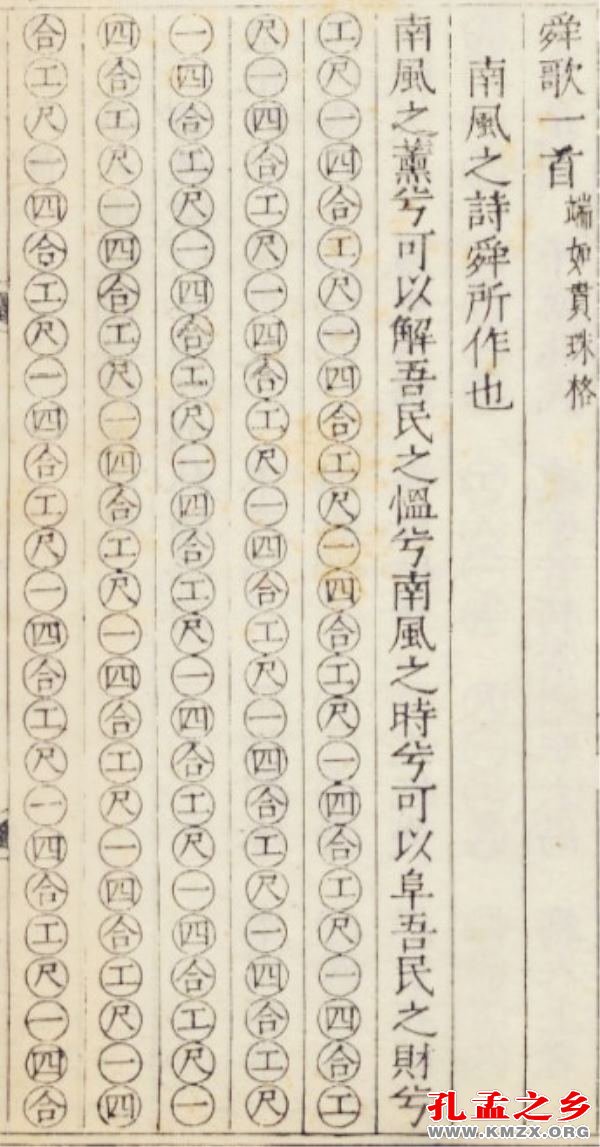 舜歌一首端如貫珠格
南風之詩舜所作也
南風之薰兮可以解吾民之慍兮南風之時兮可以阜吾民之財兮
工尺一四合工尺一四合工尺一四合工尺一四合工尺一四合工
尺一四合工尺一四合工尺一四合工尺一四合工尺一四合工尺
一四合工尺一四合工尺一四合工尺一四合工尺一四合工尺一
四合工尺一四合工尺一四合工尺一四合工尺一四合工尺一四
合工尺一四合工尺一四合工尺一四合工尺一四合工尺一四合
孔孟之乡
WWW.KMZX.ORG